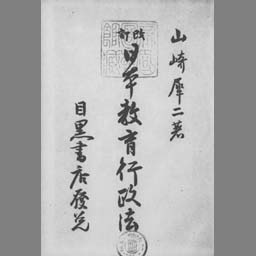 山崎犀二著
改訂
日本教育行政法
目黒書店發兌